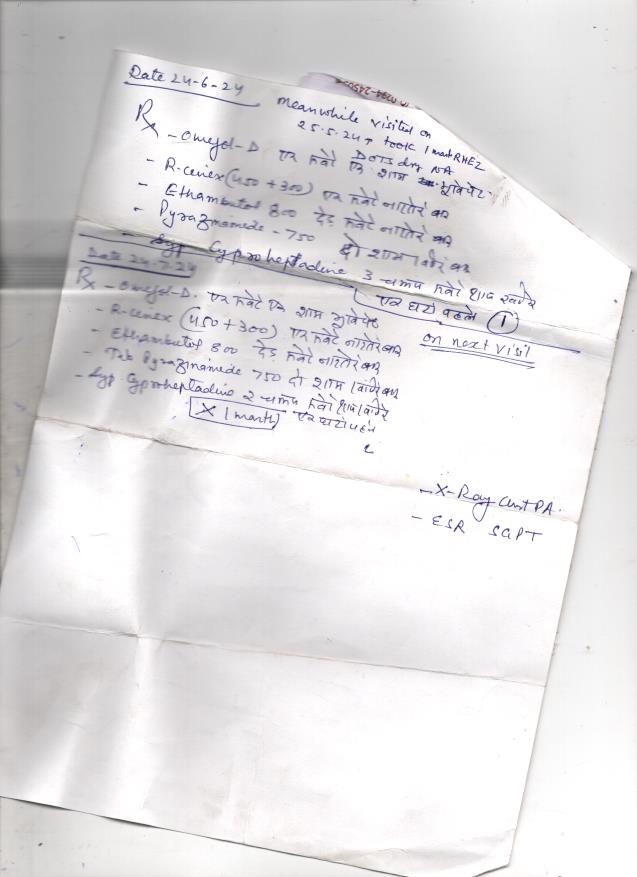 Date 24-6-24
Meanwhile visited on
25.5.24, took 1 month RHEZ
DOTS drug NA
Rx - Omejel-D एक सवेरे एक शाम
- R-cinex (450 + 300) एक सवेरे
- Ethambutol 800 डेढ़ सवेरे
- Pyrazinamide - 750 दो शाम
- Syp Cyproheptadine 3 चम्मच सवेरे शाम
एक घंटा पहले 1
on next visit
Date 24-7-24
Rx - Omejel-D. एक सवेरे एक शाम
- R-cinex (450 + 300) एक सवेरे
- Ethambutol 800 डेढ़ सवेरे
- Tab Pyrazinamide 750 दो शाम
- Syp. Cyproheptadine 2 चम्मच सवेरे शाम
X 1 month एक घंटा पहले
- X-Ray Chest PA.
- ESR SGPT